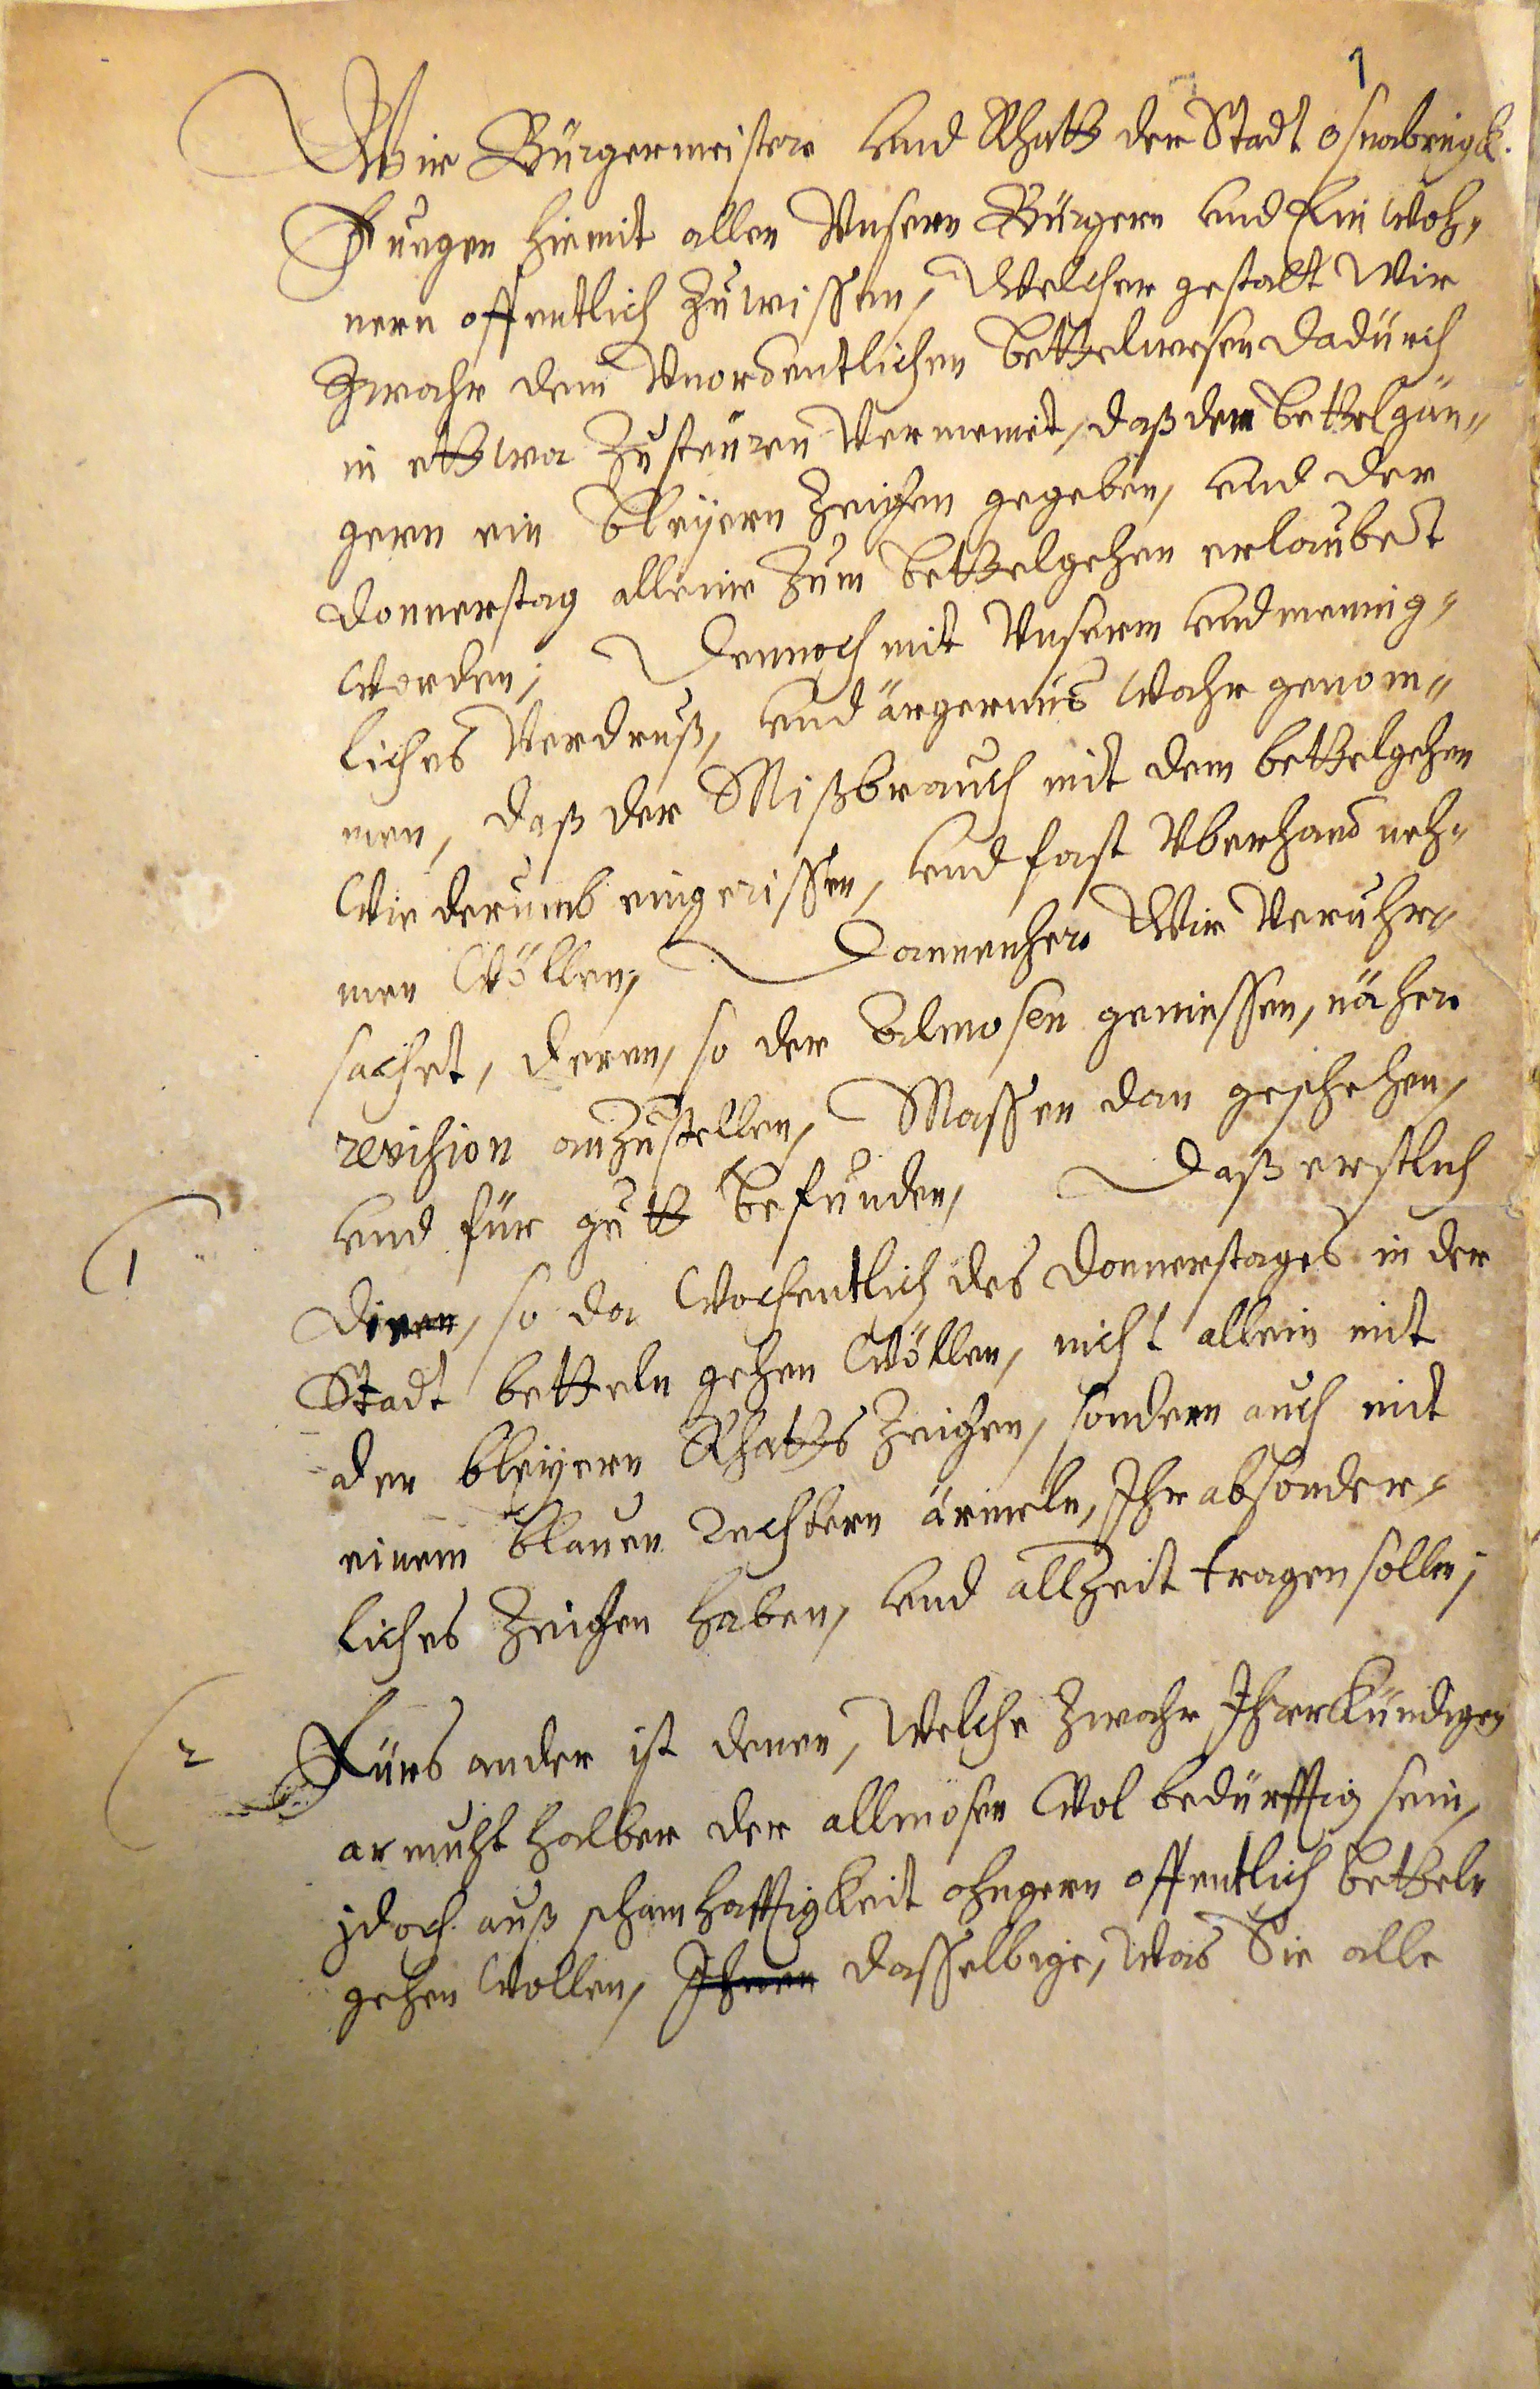 1
Wir Bürgermeistere und Rhatt der Stadt Osnabrügk.
Fuegen hiemit allen Unsern Bürgern und Einwoh„
nern offentlich zu wissen, Welcher gestalt Wir
Zwahr dem Unordentlichen bettelwesen dadurch
in ettwa zusteuren Vermeint, daß den bettelgän„
gern ein bleyern Zeichen gegeben, und der
donnerstag alleine zum bettelgehen erlaubet
worden; Dennoch mit Unserm und mennig„
liches Verdruß, und ärgernus wahr genom„
men, daß der Mißbrauch mit dem bettelgehen
Wiederumb eingerissen, und fast Uberhand neh„
men wöllen, Dannenhero Wir Veruhr„
sachet, deren, so der Almosen geniessen, nähere
revision anzustellen, Massen dan geschehen,
und für gutt befunden, Daß erstlich
1
diven, so da wochentlich des Donnerstages in der
Stadt betteln gehen wöllen, nicht allein mit
den bleyern Rhatts Zeichen, sondern auch mit
einem blauen rechtern ärmeln, Ihr absonder„
liches Zeichen haben, und allzeit tragen sollen;
2
Fürs ander ist denen, Welche zwahr Ihrer kündigen
armuht halber der allmosen wol bedürfftig sein,
jdoch auß schamhafftigkeit ohngern offentlich betteln
gehen wollen, Ihnen dasselbige, was Sie alle